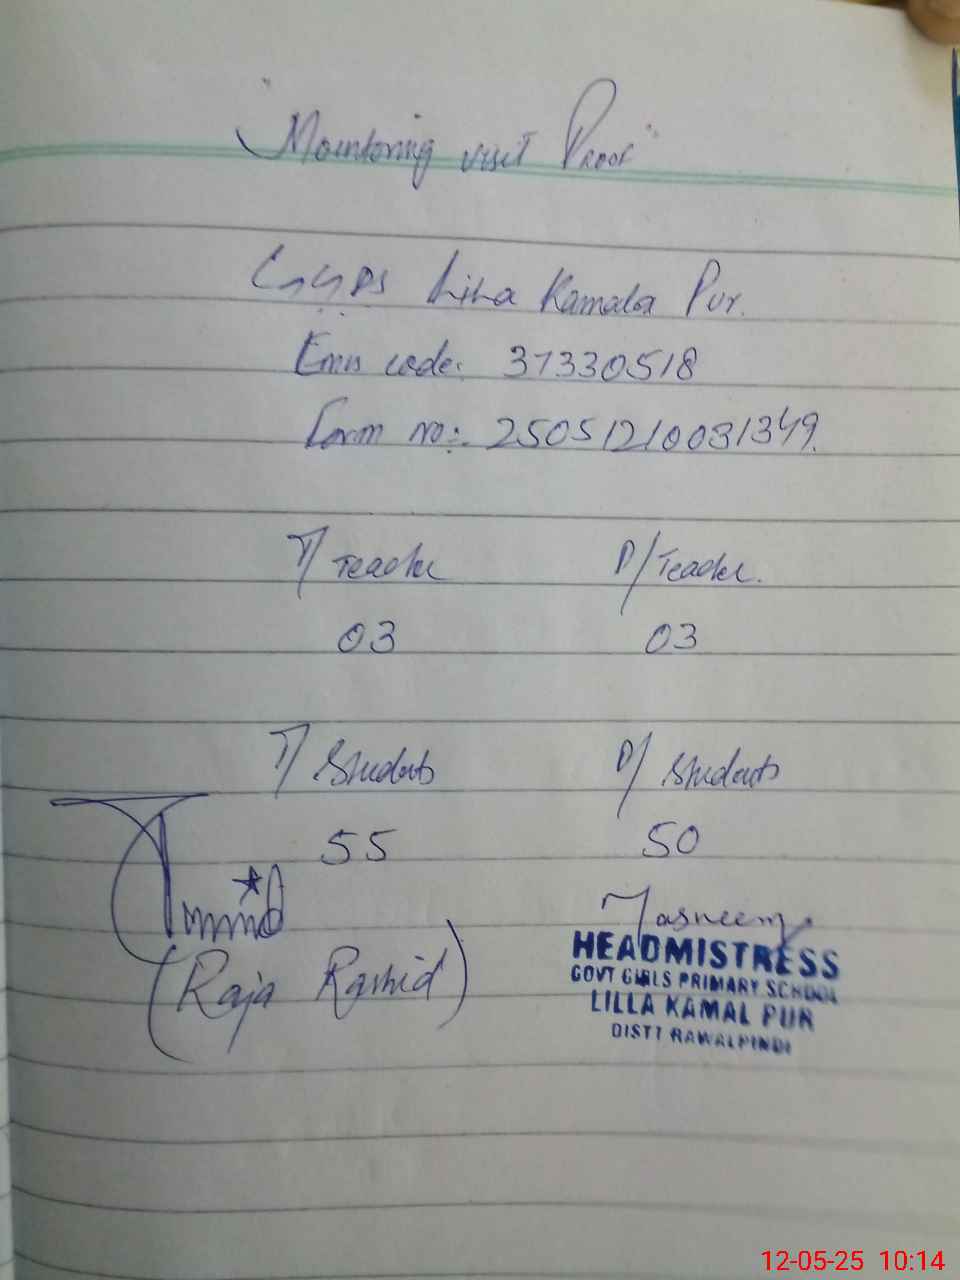 "Monitoring visit Proof"
GGPS Lilla Kamala Pur.
Emis code: 37330518
Form no:- 25051210031349.
T/ Teacher P/ Teacher.
03 03
T/ Students P/ Students
55 50
Tasneem
(Raja Rashid)
HEADMISTRESS
GOVT GIRLS PRIMARY SCHOOL
LILLA KAMAL PUR
DISTT RAWALPINDI
12-05-25 10:14